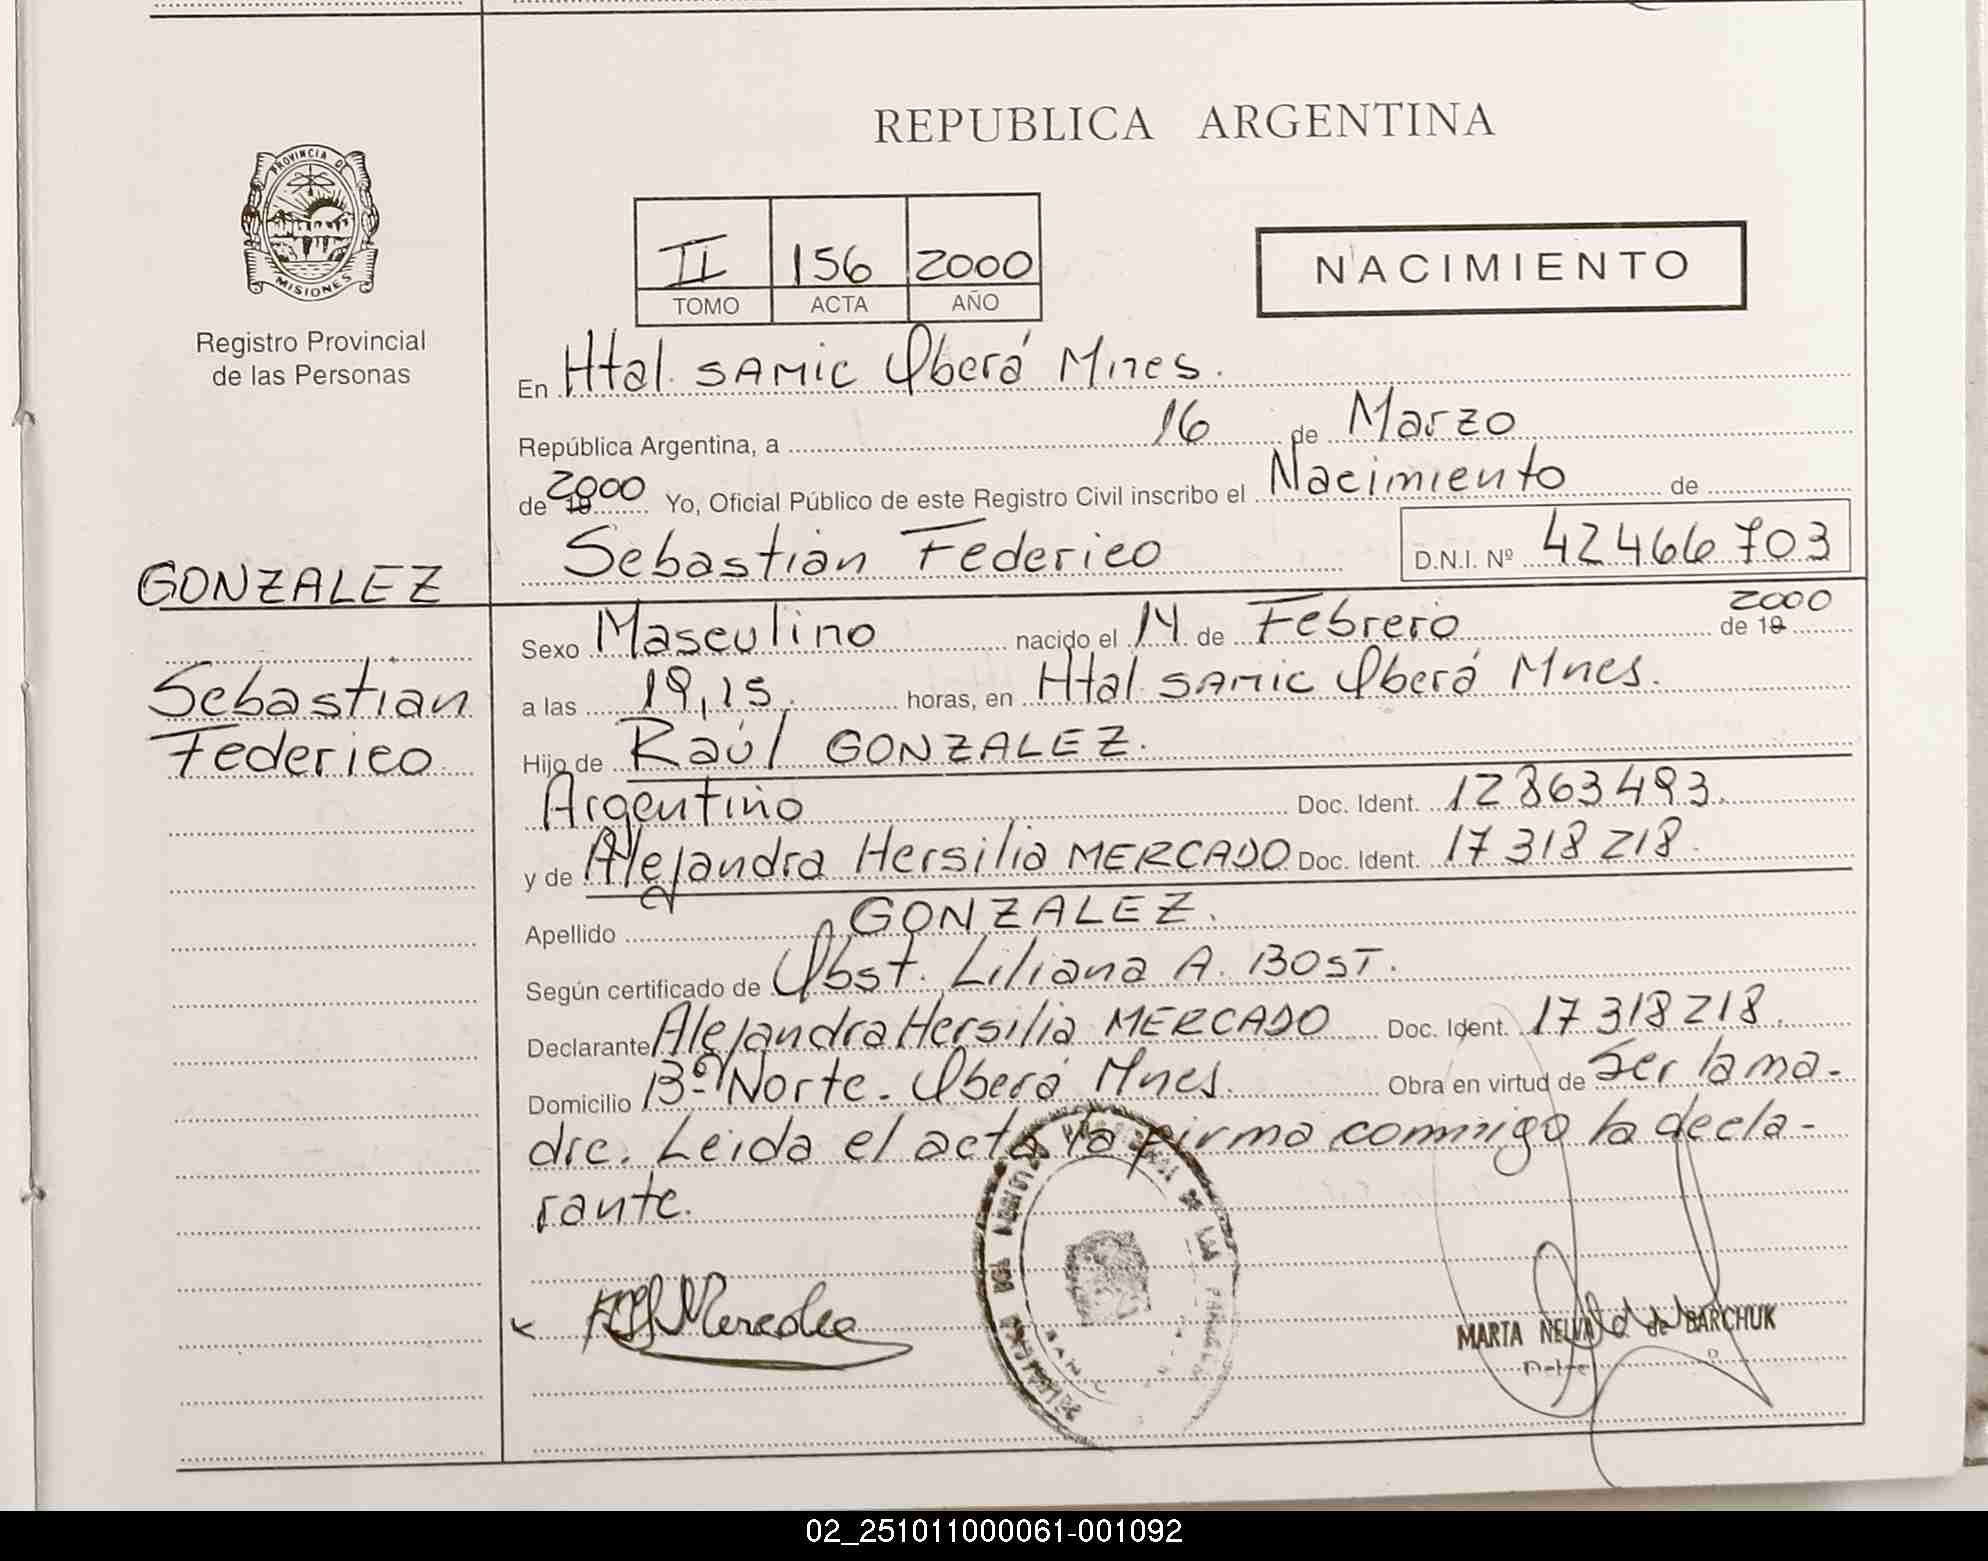 REPUBLICA ARGENTINA
PROVINCIA DE
MISIONES
Registro Provincial
de las Personas
II 156 2000
TOMO ACTA AÑO
NACIMIENTO
En Htal. SAMIC Oberá Mnes.
República Argentina, a 16 de Marzo
de 19 2000 Yo, Oficial Público de este Registro Civil inscribo el Nacimiento de
Sebastian Federico D.N.I. Nº 42466703
GONZALEZ
Sebastian
Federico
Sexo Masculino nacido el 14 de Febrero de 19 2000
a las 19,15. horas, en Htal SAMIC Oberá Mnes.
Hijo de Raúl GONZALEZ.
Argentino Doc. Ident. 12863493.
y de Alejandra Hersilia MERCADO Doc. Ident. 17318218.
Apellido GONZALEZ.
Según certificado de Obst. Liliana A. BOST.
Declarante Alejandra Hersilia MERCADO Doc. Ident. 17318218.
Domicilio Bº Norte. Oberá Mnes. Obra en virtud de Ser la ma-
dre. Leida el acta la firma conmigo la decla-
rante.
MARTA NELVA de BARCHUK
02_251011000061-001092